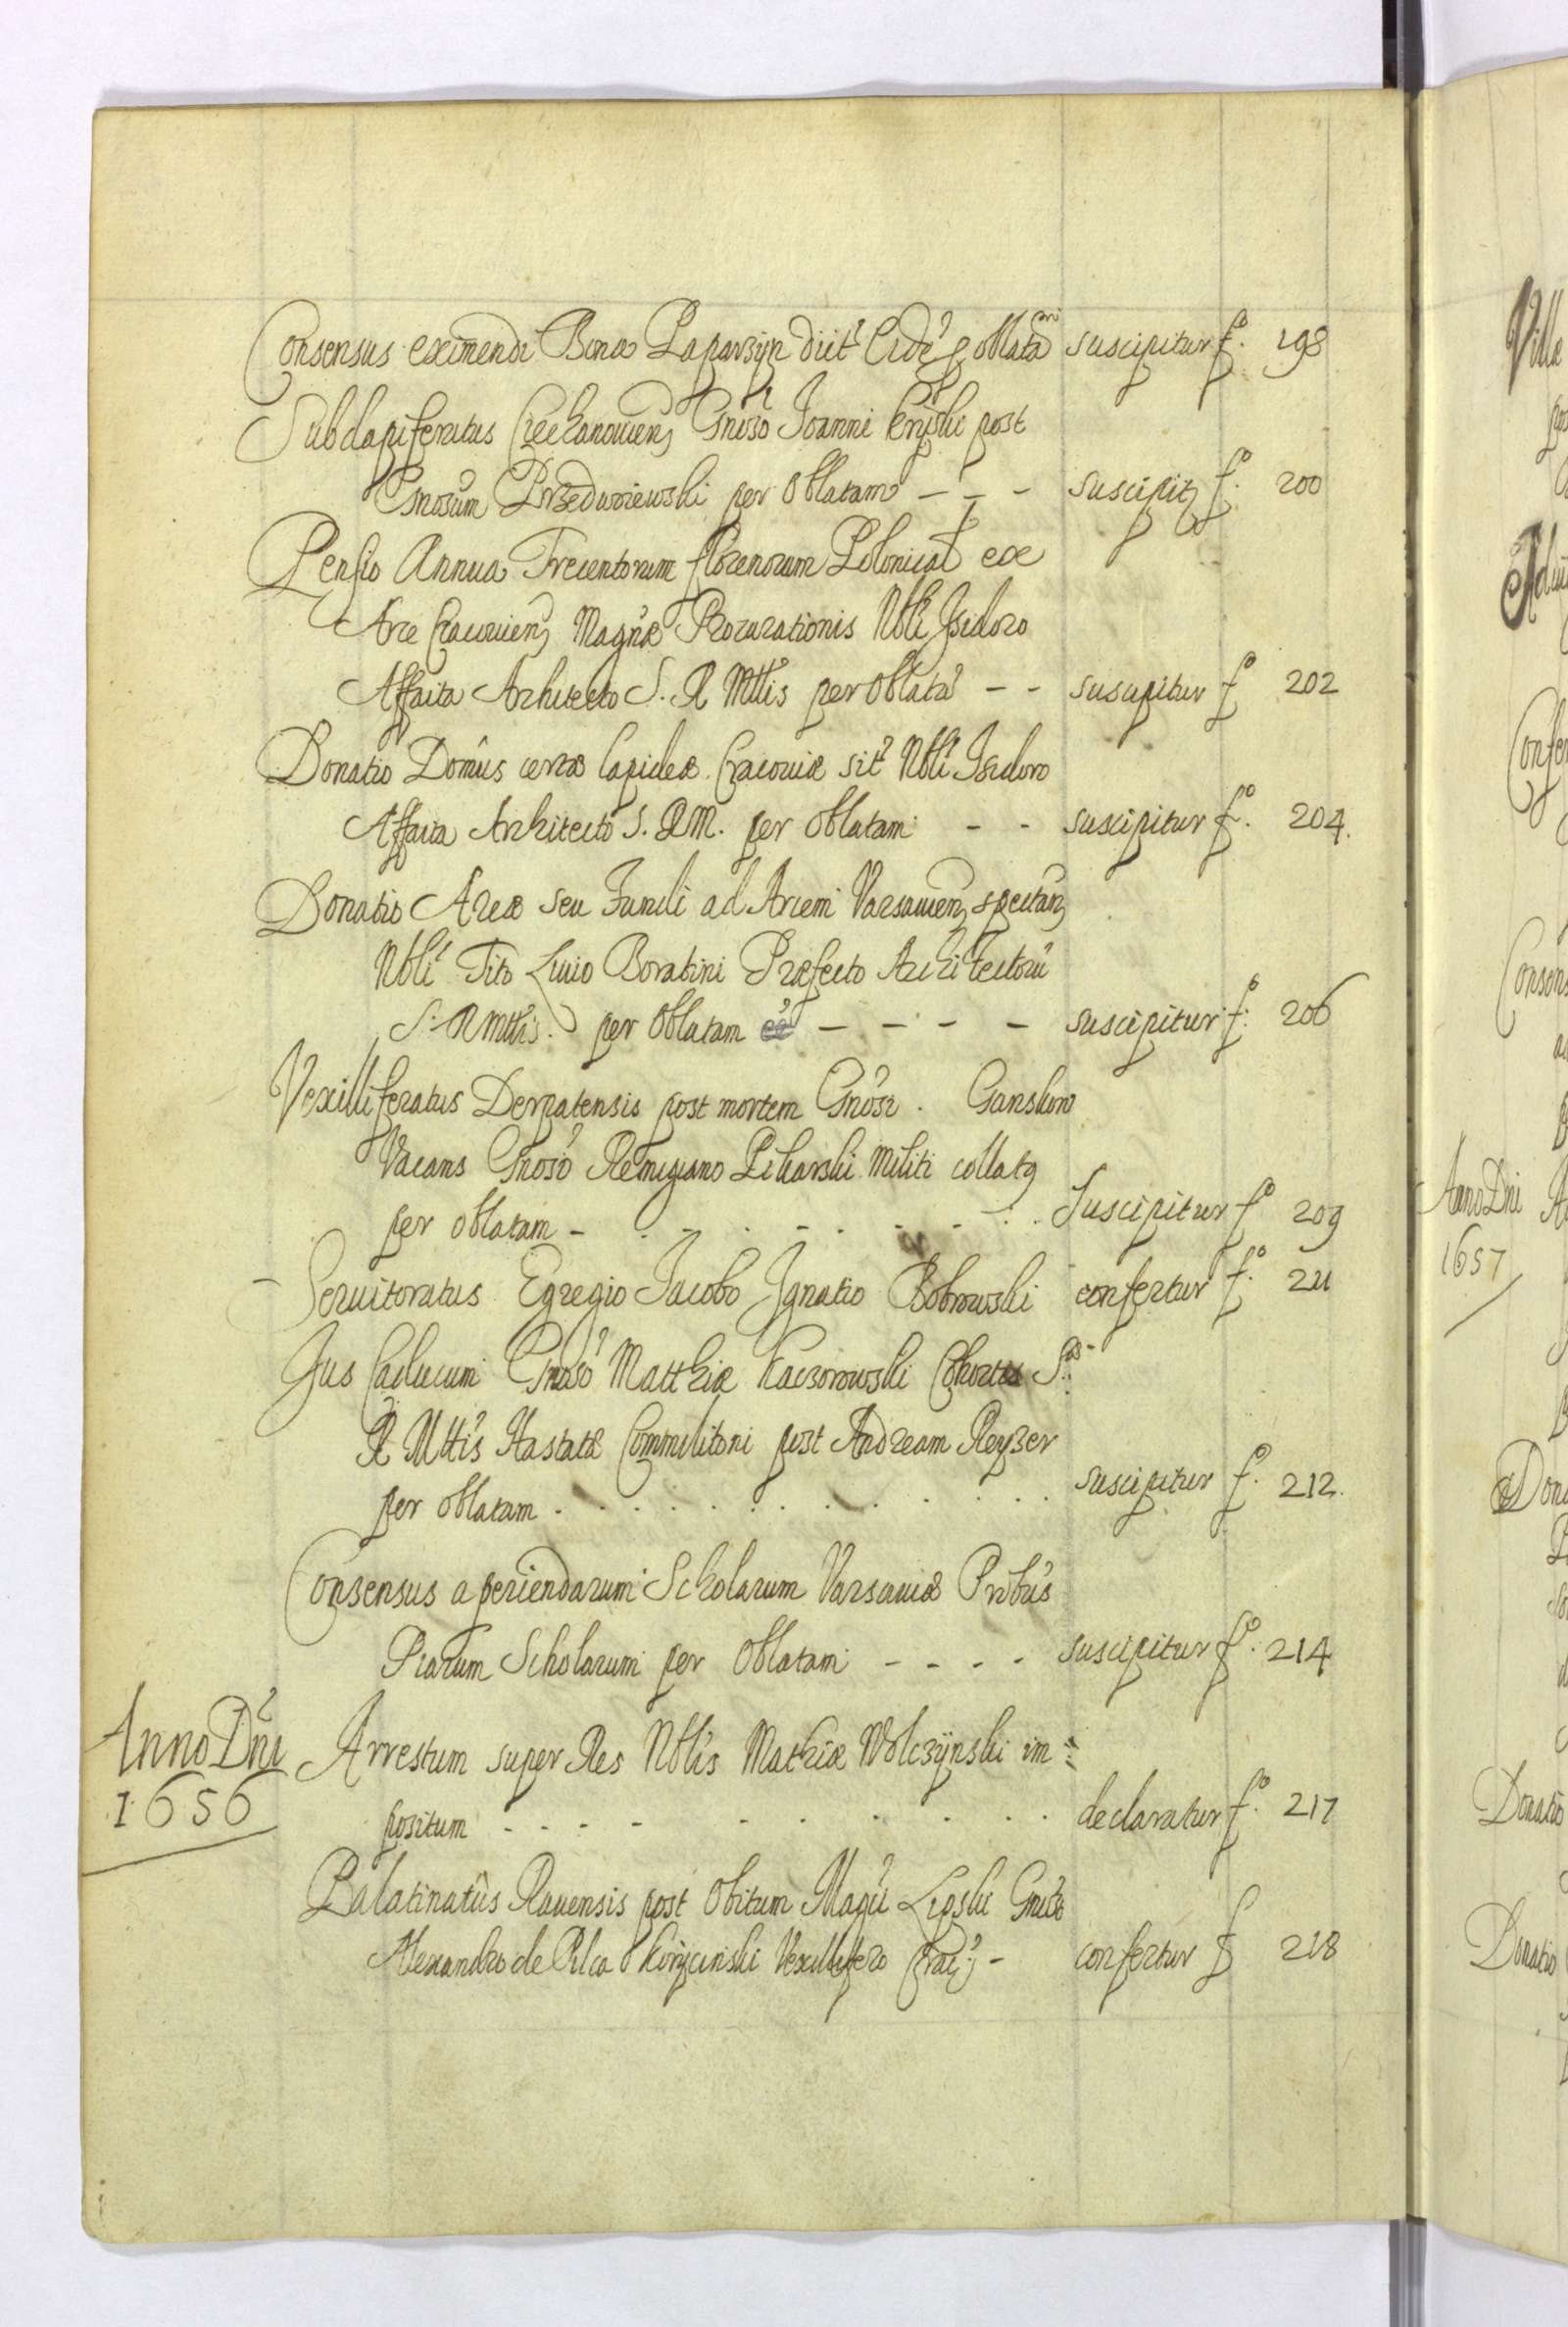 Consensus eximendi Bona Paparzyn dict Eidē p oblatā suscipitur fo. 198
Subdapiferatus Ciechanouien Gnōso Joanni Krÿski post
Gnosum Przeduoiewski per Oblatam - - - suscipit fo. 200
Pensio Annua Trecentorum florenorum Polonical ex
Arce Cracouien Magnæ Procurationis Nbli Isidoro
Affaita Architecto S. R Mttis per Oblatā - - suscipitur fo 202
Donatio Domûs certæ lapideæ Cracouiæ sit Nbli Isidoro
Affaita Architecto S. R M. per Oblatam - - suscipitur fo. 204.
Donatio Areæ seu Fundi ad Arcem Varsauien spectan
Nbli Tito Liuio Boratini Præfecto Architectorū
S. R Mttis. per Oblatam - - - - suscipitur fo. 206
Vexilliferatus Derpatensis post mortem Gnōsi. Ganskow
Vacans Gnoso Remigiano Pikarski Militi collat9
per oblatam - - - - - - - Suscipitur fo 209
- Seruitoratus Egregio Jacobo Ignatio Bobrowski confertur fo. 211
Jus Caducum Gnoso Matthiæ Kaczorowski Cohortis S.
R Mttis Hastatæ Commilitoni post Andream Reyzer
per oblatam . . . . . . . . . suscipitur fo. 212.
Consensus aperiendarum Scholarum Varsauiæ Prībus
Piarum Scholarum per Oblatam - - - - suscipitur fo. 214
Anno Dni Arrestum super Res Nblis Mathiæ Wolczÿnski im=
1656 positum - - - - - . . . . declaratur fo. 217
Palatinatûs Rauensis post Obitum Magci Lipski Gnoso
Alexandro de Pilca Korÿcinski Vexillifero Crac - confertur f 218
Anno Dni
1657
Donatio
Donatio